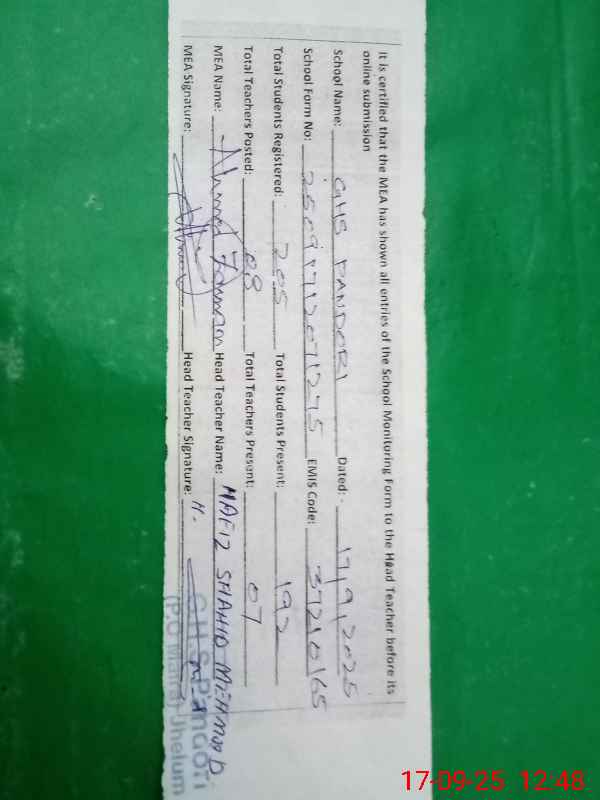 It is certified that the MEA has shown all entries of the School Monitoring Form to the Head Teacher before its
online submission
School Name: GHS PANDORI Dated: 17/9/2025
School Form No: EMIS Code: 37210165
Total Students Registered: 205 Total Students Present: 192
Total Teachers Posted: 08 Total Teachers Present: 07
MEA Name: Ahmed Head Teacher Name: HAFIZ SHAHID MEHMOOD
MEA Signature: Head Teacher Signature:
G.H.S Pandori
(P.O Mahal Jhelum
17-09-25 12:48